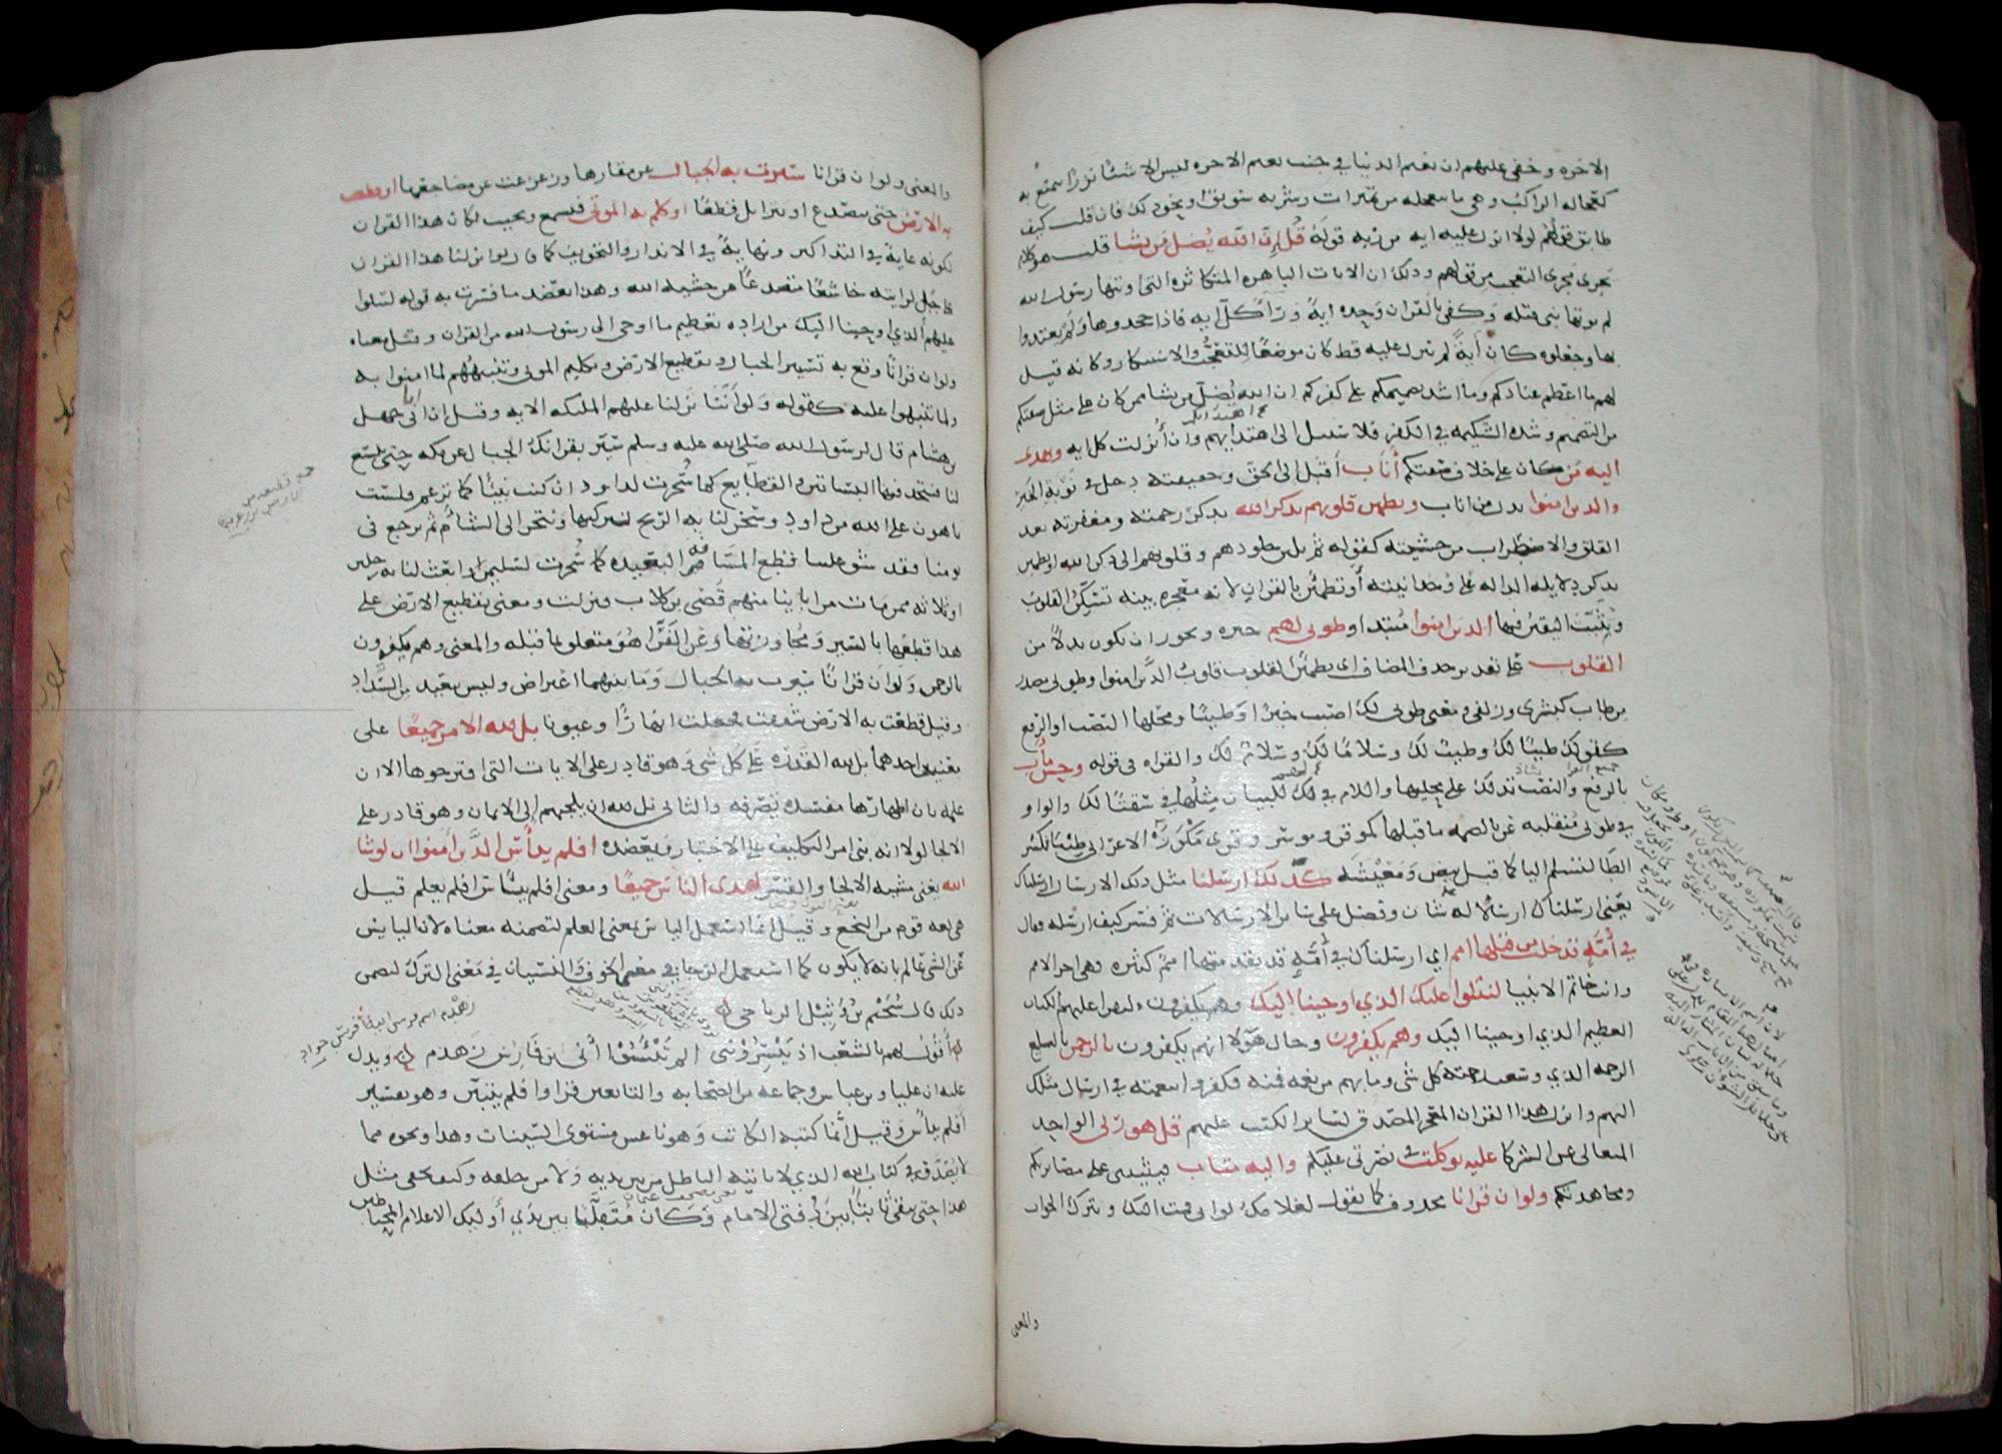 الاخره وخفى عليهم ان نعيم الدنيا فى جنب نعيم الاخره ليس الا شئا نزرًا يتمتع به
كعجاله الراكب وهى ما يتعجله من تميرات او شربه سويق او نحو ذلك فان قلت كيف
طابق قولهم لولا انزل عليه ايه من ربه قوله قل ان الله يضل من يشا قلت هو كلام
يجرى مجرى التعجب من قولهم وذلك ان الايات الباهره المتكاثره التى اوتيها رسول الله
لم يوتها نبى قبله وكفى بالقران وحده ايةً ورآ كل ايه فاذا جحدوها ولم يعتدوا
بها وجعلوه كان آيةً لم تنزل عليه قط كان موضعًا للتعجب والاستنكار وكانه قيل
لهم ما اعظم عنادكم وما اشد تصميمكم على كفركم ان الله يضل من يشا ممن كان على مثل صفتكم
من التصميم وشده الشكيمه فى الكفر فلا سبيل الى اهتدايهم وان أنزلت كل ايه ويهدى
اليه من كان على خلاف صفتكم أناب أقبل الى الحق وحقيقته دخل فى نوبة الخير
والذين امنوا بدل من اناب وتطمين قلوبهم بذكر الله بذكر رحمته ومغفرته بعد
القلق والاضطراب من خشيته كقوله ثم تلين جلودهم وقلوبهم الى ذكر الله او تطمين
بذكر دلايله الداله على وحدانيته أو تطمئن بالقران لانه معجزه بينه تسكن القلوب
وتثبت اليقين فيها الذين امنوا مبتدا وطوبى لهم خبره ويجوز ان يكون بدلاً من
القلوب على تقدير حذف المضاف اى تطمئن القلوب قلوب الذين امنوا وطوبى مصدر
من طاب كبشرى وزلفى ومعنى طوبى لك اصبت خيرًا وطيبًا ومحلها النصب او الرفع
كقولك طيبًا لك وطيبٌ لك وسلامًا لك وسلامٌ لك والقراه فى قوله وحسن مآب
بالرفع والنصب تدلك على محليها واللام فى لك للبيان مثلها فى سقيًا لك والواو
فى طوبى منقلبه عن يا لضمه ما قبلها كموقن وموسر وقرى مكوزه الاعرابى طيبى لهم فكسر
الطآ لتسلم اليا كما قيل بيض ومعيشه كذلك ارسلنا مثل ذلك الارسال ارسلناك
يعنى ارسلناك ارسالا له شان وفضل على ساير الارسالات ثم فسر كيف ارسله فقال
فى أمةٍ قد خلت من قبلها امم اي ارسلناك فى أمةٍ قد تقدمتها اممٌ كثيره وهى اخر الامم
وانت خاتم الانبيا لتتلوا عليك الذي اوحينا اليك وهم يكفرون لتقرا عليهم الكتاب
العظيم الذي اوحينا اليك وهم يكفرون وحال هولا انهم يكفرون بالرحمن بالبليغ
الرحمه الذي وسعت رحمته كل شى وما بهم من نعمه فمنه فكفروا بنعمته فى ارسال مثلك
اليهم وانزل هذا القران المعجز المصدق لساير الكتب عليهم قل هو ربى الواحد
المتعالى عن الشركا عليه توكلت فى نصرتى عليكم واليه متاب فيثيبنى على مصابرتكم
ومجاهدتكم ولو ان قرانا محذوف كما يقول لغلامك لو انى قمت اليك وتترك الجواب
والمعنى
والمعنى ولو ان قرانا سيرت به الجبال عن مقارها وزعزعت عن مضاجعها او قطعت
به الارض حتى تتصدع او تتزايل قطعًا او كلم به الموتى فتسمع وتجيب لكان هذا القران
لكونه غاية فى التذاكير ونهايةً فى الانذار والتخويف كما قال لو انزلنا هذا القران
على جبل لرايته خاشعًا متصدعًا من خشيه الله وهذا يعضد ما فسرت به قوله لتتلوا
عليهم الذي اوحينا اليك من اراده تعظيم ما اوحى الى رسول الله من القران وقيل معناه
ولو ان قرانًا وقع به تسيير الجبال وتقطيع الارض وتكليم الموتى وتنبيههم لما امنوا به
ولما تنبهوا عليه كقوله ولو أننا نزلنا عليهم المليكه الايه وقيل ان ابا جهل
بن هشام قال لرسول الله صلى الله عليه وسلم سير بقرانك الجبال عن مكه حتى تتسع
لنا فنتخذ فيها البساتين والقطايع كما سُخرت لداود ان كنت نبيًا كما تزعم فلست
باهون على الله من داود وسخر لنا به الريح لنركبها ونتجر الى الشام ثم نرجع فى
يومنا فقد شق علينا قطع المسافه البعيده كما سُخرت لسليمان او ابعث لنا به رجلين
او ثلاثه ممن مات من ابآينا منهم قُصى بن كلاب فنزلت ومعنى تقطيع الارض على
هذا قطعها بالسير ومجاوزتها وعن الفرّا هو متعلق بما قبله والمعنى وهم يكفرون
بالرحمن ولو ان قرانًا سيرت به الجبال وما بينهما اعتراض وليس ببعيد من السداد
وقيل قطعت به الارض شققت فجعلت انهارًا وعيونا بل لله الامر جميعًا على
معنيين احدهما بل لله القدره على كل شى وهو قادر على الايات التى اقترحوها الا ان
علمه بان اظهارها مفسده يصرفه والثانى بل لله ان يلجيهم الى الايمان وهو قادر على
الالجا لولا انه بنى امر التكليف على الاختيار ويعضده افلم ييأس الذين آمنوا ان لو شا
الله يعنى مشيه الالجا والقسر لهدى الناس جميعًا ومعنى افلم ييأس افلم يعلم قيل
هى لغه قوم من النخع وقيل انما استعمل الياس بمعنى العلم لتضمنه معناه لان اليايس
عن الشى عالم بانه لا يكون كما استعمل الرجا فى معنى الخوف والنسيان فى معنى الترك لتضمن
ذلك قال سُحَيْم بن وُثيل الرياحى
أقول لهم بالشعب اذ ييسرونني الم تيئسوا أنى ابن فارس زهدم ويدل
عليه ان عليا وابن عباس وجماعه من الصحابه والتابعين قراوا افلم يتبين وهو تفسير
افلم ييأس وقيل انما كتبه الكاتب وهو ناعس مستوى السينات وهذا ونحوه مما
لا يُصَدق فى كتاب الله الذي لا ياتيه الباطل من بين يديه ولا من خلفه وكيف يخفى مثل
هذا حتى يبقى ثابتًا بين دفتى الامام وكان متقلبًا بين يدي أوليك الاعلام المحتاطين